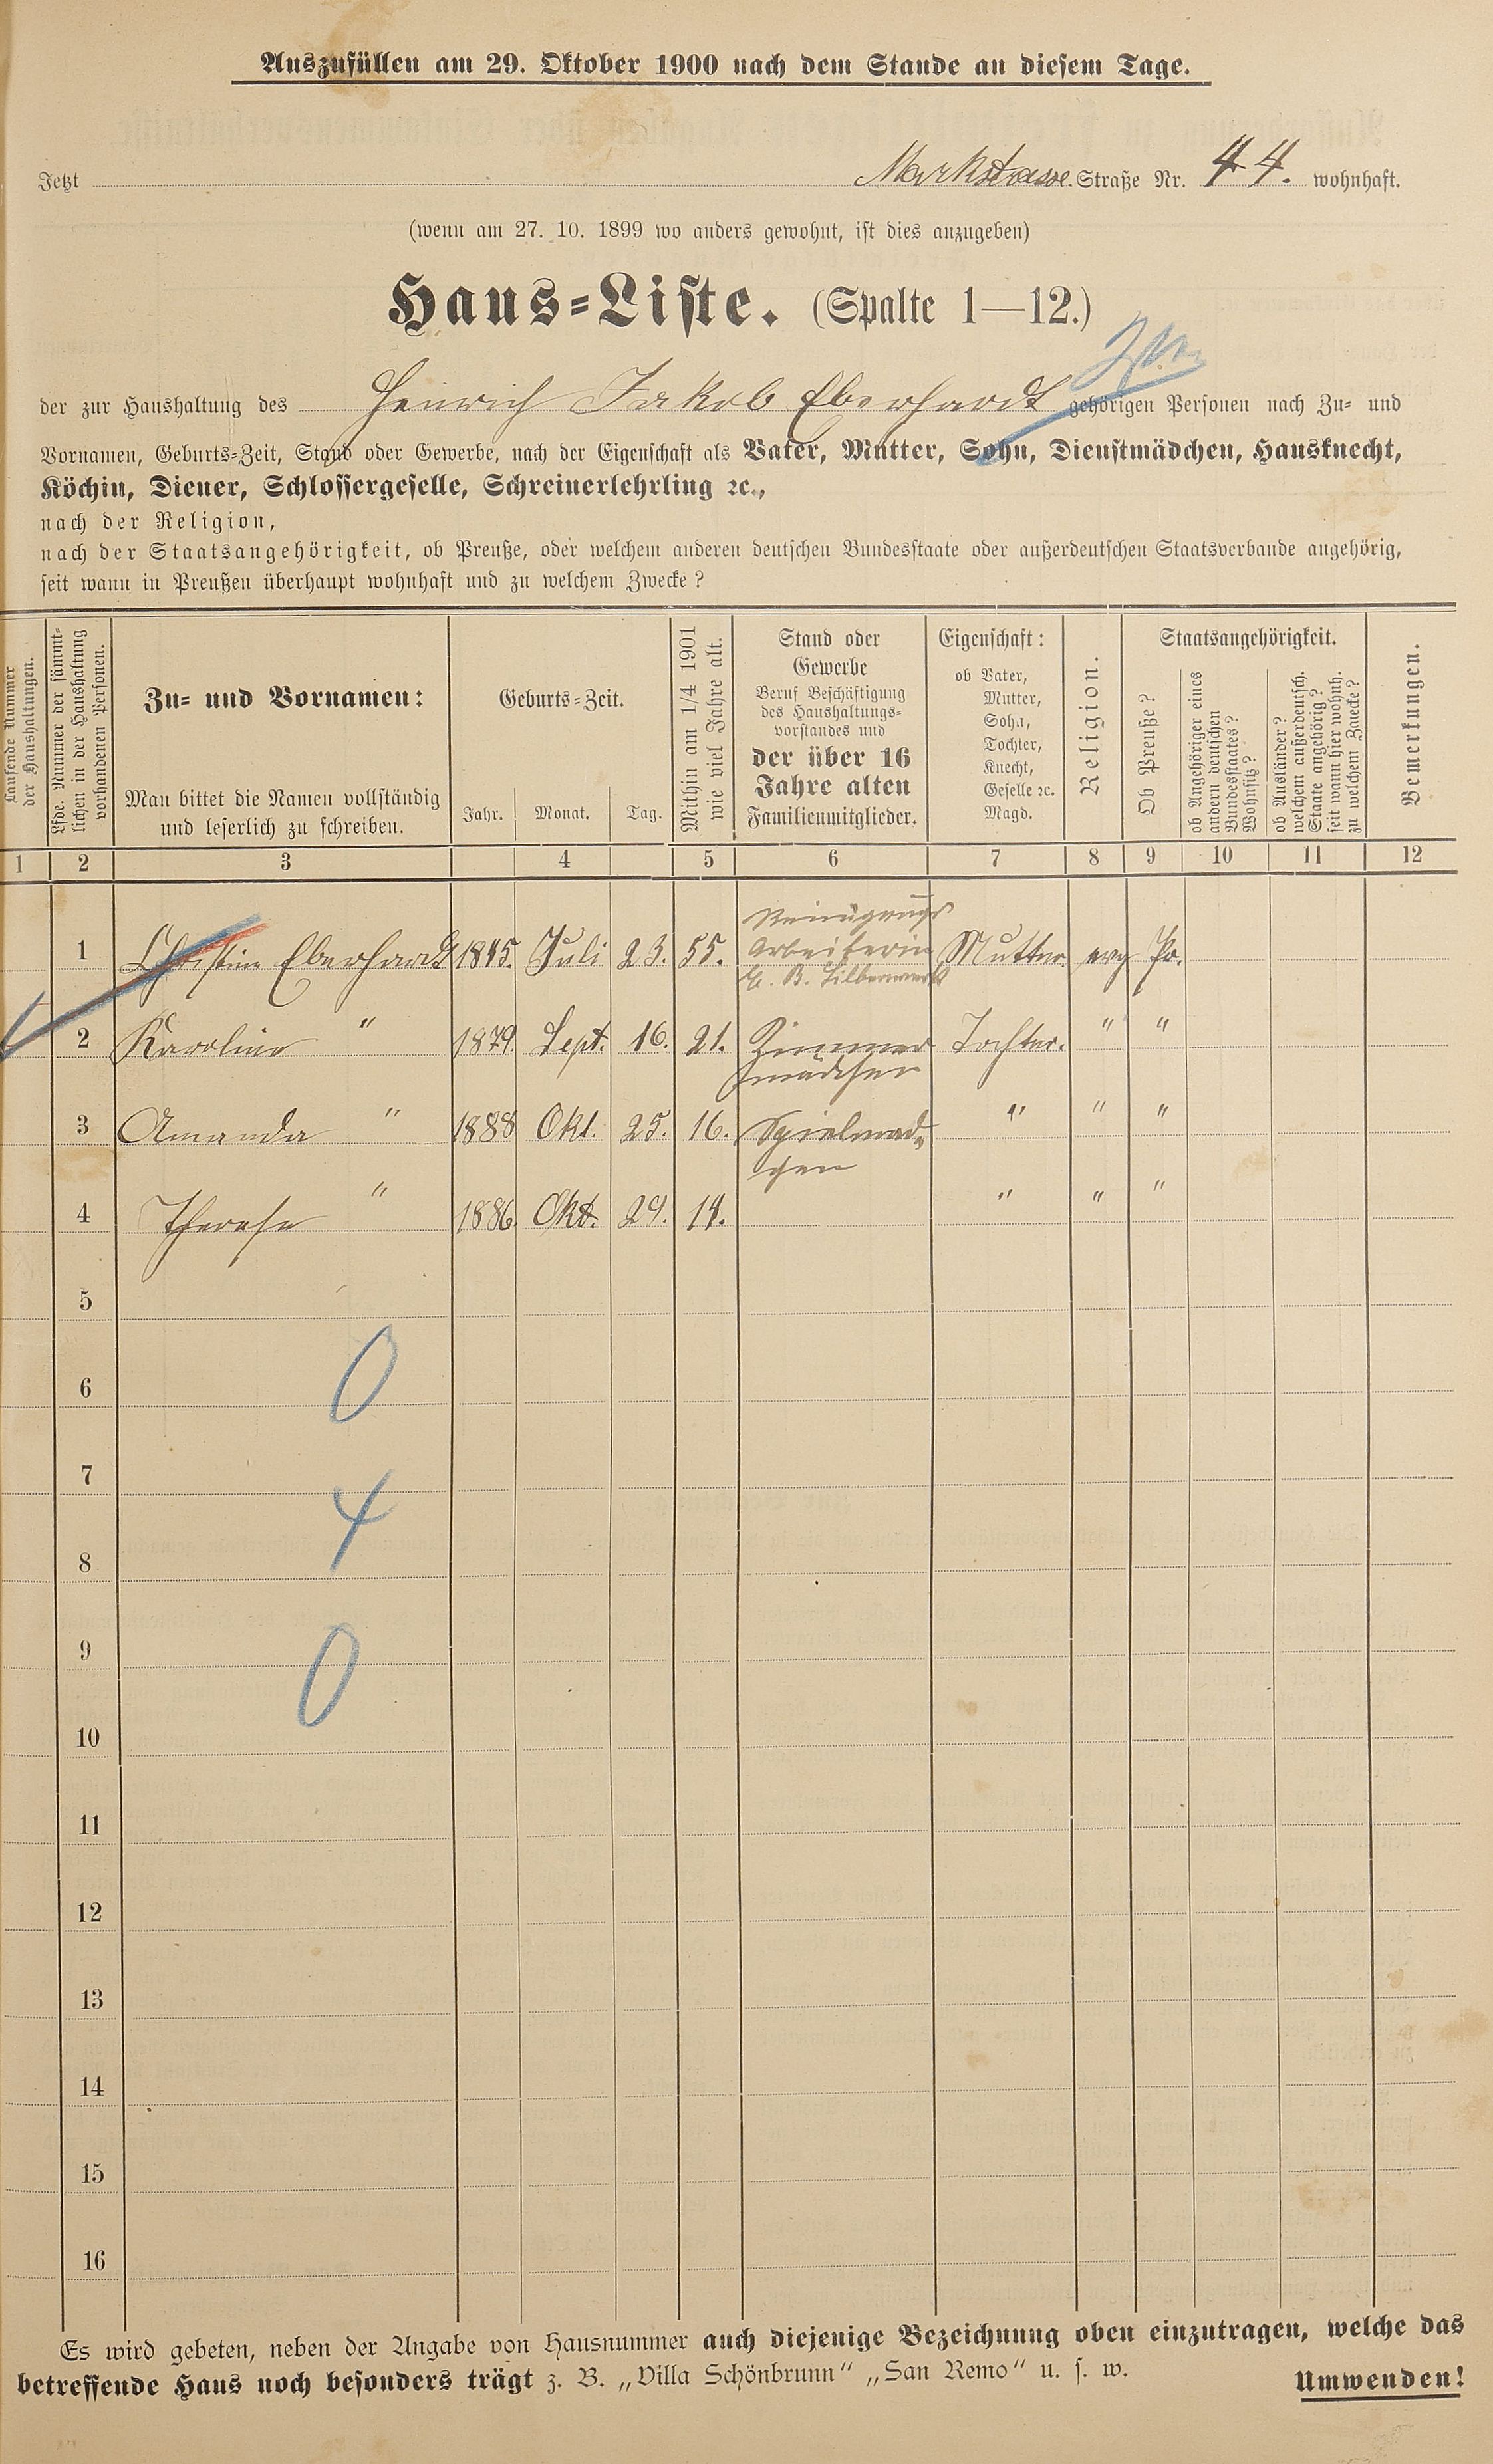 Auszufüllen am 29. Oktober 1900 nach dem Stande an diesem Tage.
Jetzt Markstrasse. Straße Nr. 44. wohnhaft.
(wenn am 27. 10. 1899 wo anders gewohnt, ist dies anzugeben)
Haus-Liste. (Spalte 1—12.)
der zur Haushaltung des Heinrich Jakob Eberhardt gehörigen Personen nach Zu- und
Vornamen, Geburts-Zeit, Stand oder Gewerbe, nach der Eigenschaft als Vater, Mutter, Sohn, Dienstmädchen, Hausknecht,
Köchin, Diener, Schlossergeselle, Schreinerlehrling ꝛc.,
nach der Religion,
nach der Staatsangehörigkeit, ob Preuße, oder welchem anderen deutschen Bundesstaate oder außerdeutschen Staatsverbande angehörig,
seit wann in Preußen überhaupt wohnhaft und zu welchem Zwecke?
Laufende Nummer
der Haushaltungen.
Lfde. Nummer der sämmt-
lichen in der Haushaltung
vorhandenen Personen.
Zu- und Vornamen:
Man bittet die Namen vollständig
und leserlich zu schreiben.
Geburts-Zeit.
Jahr. Monat. Tag.
Mithin am 1/4 1901
wie viel Jahre alt.
Stand oder
Gewerbe
Beruf Beschäftigung
des Haushaltungs-
vorstandes und
der über 16
Jahre alten
Familienmitglieder.
Eigenschaft:
ob Vater,
Mutter,
Sohn,
Tochter,
Knecht,
Geselle ꝛc.
Magd.
Religion.
Staatsangehörigkeit.
Ob Preuße?
ob Angehöriger eines
andern deutschen
Bundesstaates?
Wohnsitz?
ob Ausländer?
welchem außerdeutsch.
Staate angehörig?
seit wann hier wohnh.
zu welchem Zwecke?
Bemerkungen.
1 2 3 4 5 6 7 8 9 10 11 12
Reinigungs
1 Christine Eberhardt 1845. Juli 23. 55. Arbeiterin Mutter. evg Pr.
2 Karoline " 1879. Sept. 16. 21. Zimmer Tochter. " "
mädchen
3 Amanda " 1888 Okt. 25. 16. Spielmäd- " " "
chen
4 Therese " 1886. Okt. 29. 14. " " "
5
0
6
7
4
8
9
0
10
11
12
13
14
15
16
Es wird gebeten, neben der Angabe von Hausnummer auch diejenige Bezeichnung oben einzutragen, welche das
betreffende Haus noch besonders trägt z. B. „Villa Schönbrunn“ „San Remo“ u. s. w.
Umwenden!